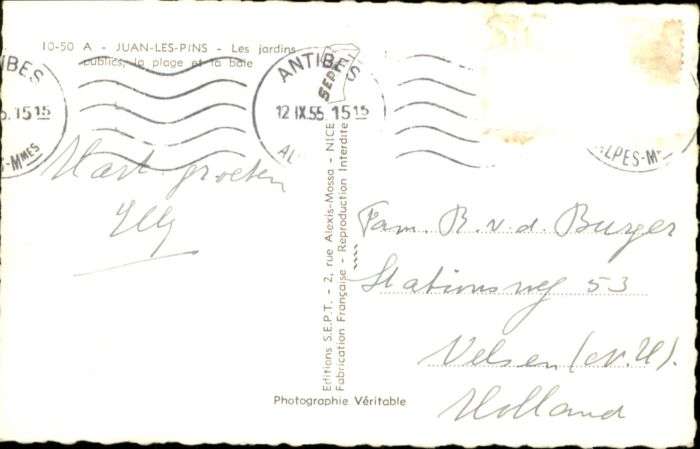 10-50 A - JUAN-LES-PINS - Les jardins
publics, la plage et la baie
ANTIBES
12 IX.55. 15 15
AL
IBES
5. 15 15
S-MMES
ALPES-M
SEPT
Hart. groeten
Elly
Editions S.E.P.T. - 2, rue Alexis-Mossa - NICE
Fabrication Française - Reproduction Interdite
Photographie Véritable
Fam. B. v. d. Burger
Stationsweg 53
Velsen (N.H.).
Holland